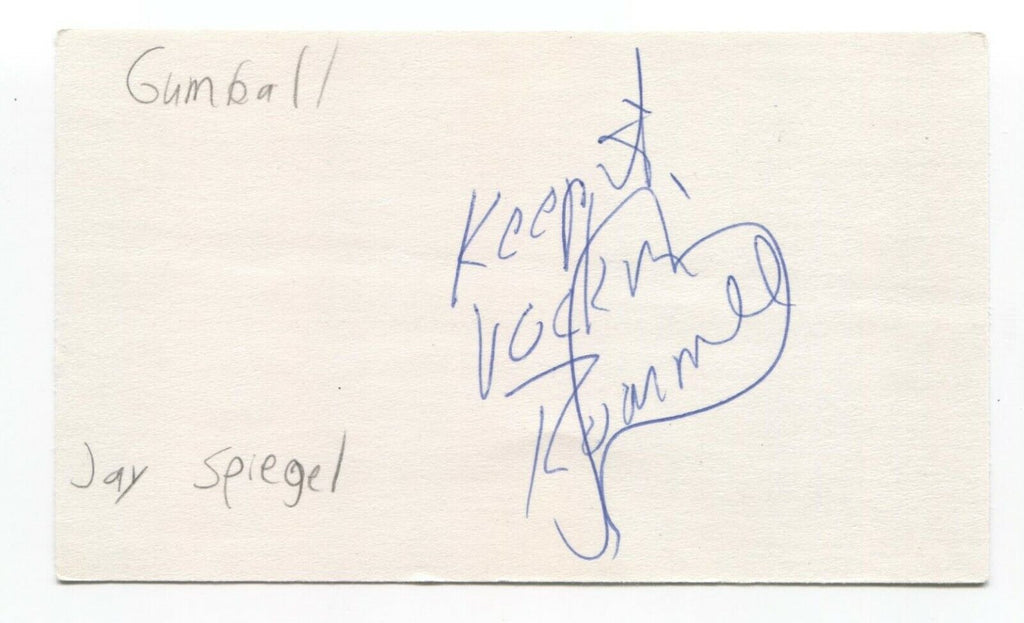 Gumball
Keep it
rockin
Jay Spiegel